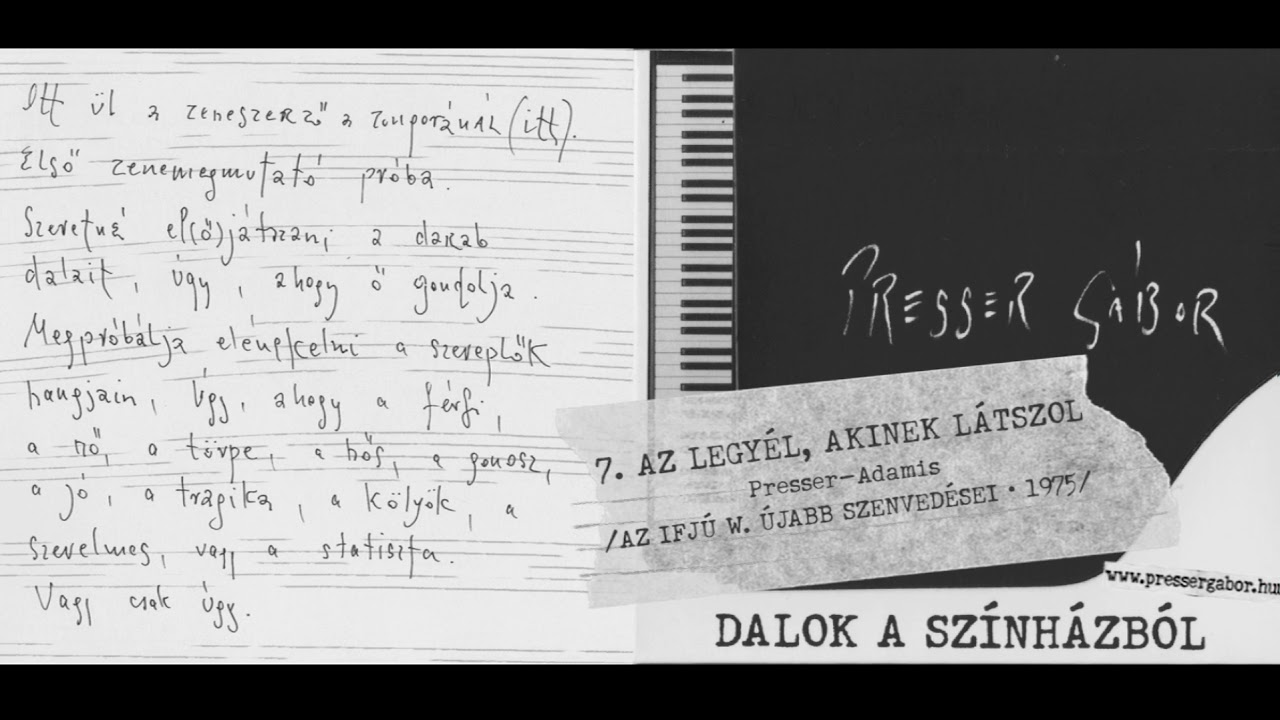 Itt ül a zeneszerző a zongoránál (itt).
Első zenemegmutató próba.
Szeretné el(ő)játszani a darab
dalait, úgy, ahogy ő gondolja.
Megpróbálja elénekelni a szereplők
hangjain, úgy, ahogy a férfi,
a nő, a törpe, a hős, a gonosz,
a jó, a tragika, a kölyök, a
szerelmes, vagy a statiszta.
Vagy csak úgy.
PRESSER GÁBOR
7. AZ LEGYÉL, AKINEK LÁTSZOL
Presser-Adamis
/AZ IFJÚ W. ÚJABB SZENVEDÉSEI • 1975/
www.pressergabor.hu
DALOK A SZÍNHÁZBÓL